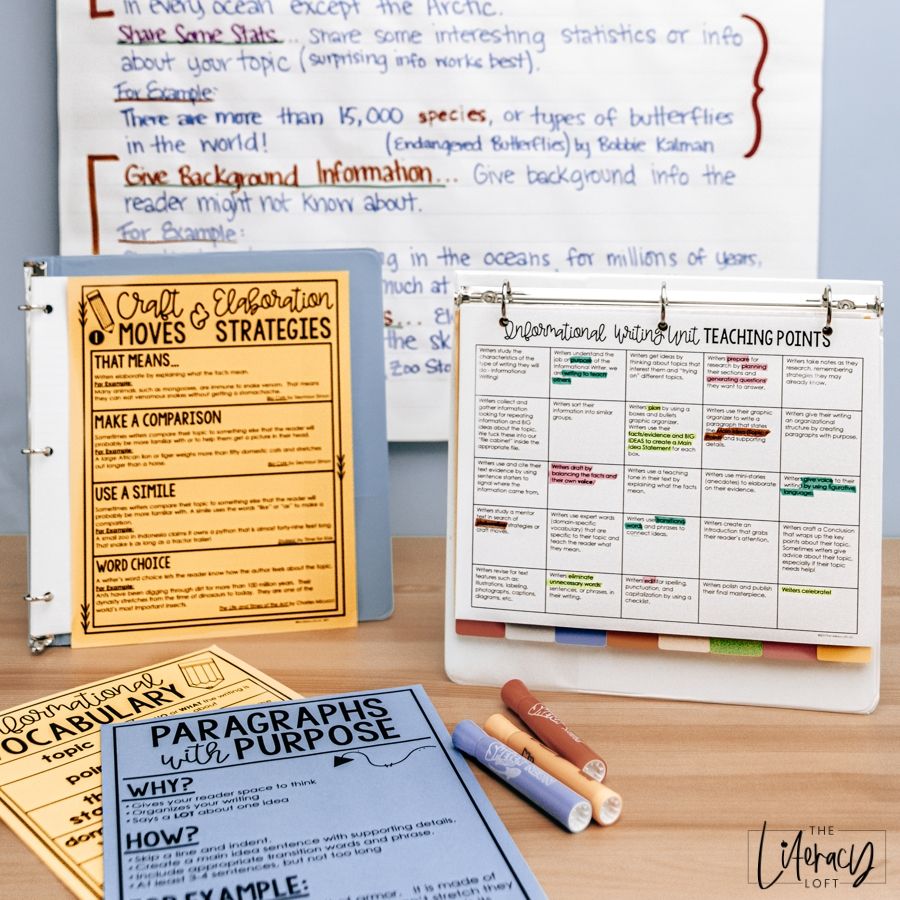 in every ocean except the Arctic.
Share Some Stats... Share some interesting statistics or info
about your topic (surprising info works best).
For Example:
There are more than 15,000 species, or types of butterflies
in the world! (Endangered Butterflies) by Bobbie Kalman
Give Background Information... Give background info the
reader might not know about.
For Example:
in the oceans for millions of years,
much at
the sk
Zoo Sto
Craft & Elaboration
1 MOVES STRATEGIES
THAT MEANS...
Writers elaborate by explaining what the facts mean.
For Example:
Many animals, such as mongooses, are immune to snake venom. That means
they can eat venomous snakes without getting a stomachache.
Big Cats by Seymour Simon
MAKE A COMPARISON
Sometimes writers compare their topic to something else that the reader will
probably be more familiar with or to help them get a picture in their head.
For Example:
A large African lion or tiger weighs more than fifty domestic cats and stretches
out longer than a horse.
Big Cats by Seymour Simon
USE A SIMILE
Sometimes writers compare their topic to something else that the reader will
probably be more familiar with. A simile uses the words "like" or "as" to make a
comparison.
For Example:
A small zoo in Indonesia claims it owns a python that is almost forty-nine feet long
That snake is as long as a tractor trailer!
WORD CHOICE
A writer's word choice lets the reader know how the author feels about the topic.
For Example:
Ants have been digging through dirt for more than 100 million years. Their
dynasty stretches from the time of dinosaurs to today. They are one of the
world's most important insects.
The Life and Times of the Ant by Charles Micucci
Informational Writing Unit TEACHING POINTS
Writers study the
characteristics of the
type of writing they will
do - Informational
Writing!
Writers understand the
job or purpose of the
Informational Writer, we
are writing to teach
others.
Writers get ideas by
thinking about topics that
interest them and "trying
on" different topics.
Writers prepare for
research by planning
their sections and
generating questions
they want to answer.
Writers take notes as they
research, remembering
strategies they may
already know.
Writers collect and
gather information
looking for repeating
information and BIG
ideas about the topic.
We tuck these into our
"file cabinet" inside the
appropriate file.
Writers sort their
information into similar
groups.
Writers plan by using a
boxes and bullets
graphic organizer.
Writers use their
facts/evidence and BIG
IDEAS to create a Main
Idea Statement for each
box.
Writers use their graphic
organizer to write a
paragraph that states
the
and supporting
details.
Writers give their writing
an organizational
structure by creating
paragraphs with purpose.
Writers use and cite their
text evidence by using
sentence starters to
signal where the
information came from.
Writers draft by
balancing the facts and
their own voice.
Writers use a teaching
tone in their text by
explaining what the facts
mean.
Writers use mini-stories
(anecdotes) to elaborate
on their evidence.
Writers give voice to their
writing by using figurative
language.
Writers study a mentor
text in search of
strategies or
craft moves.
Writers use expert words
(domain-specific
vocabulary) that are
specific to their topic and
teach the reader what
they mean.
Writers use transitional
words and phrases to
connect ideas.
Writers create an
introduction that grabs
the reader's attention.
Writers craft a Conclusion
that wraps up the
key points about their topic.
Sometimes writers give
advice about their topic,
especially if their topic
needs help!
Writers revise for text
features such as:
illustrations, labeling,
photographs, captions,
diagrams, etc.
Writers eliminate
unnecessary words,
sentences, or phrases, in
their writing.
Writers edit for spelling,
punctuation, and
capitalization by using a
checklist.
Writers polish and publish
their final masterpiece.
Writers celebrate!
Informational
VOCABULARY
or WHAT the writing is
topic
PARAGRAPHS
with PURPOSE
WHY?
• Gives your reader space to think
• Organizes your writing
• Says a LOT about one idea
HOW?
• Skip a line and indent.
• Create a main idea sentence with supporting details.
• Include appropriate transition words and phrase.
• At least 3-4 sentences, but not too long
FOR EXAMPLE:
of armor. It is made of
stretch they
THE
Literacy
LOFT